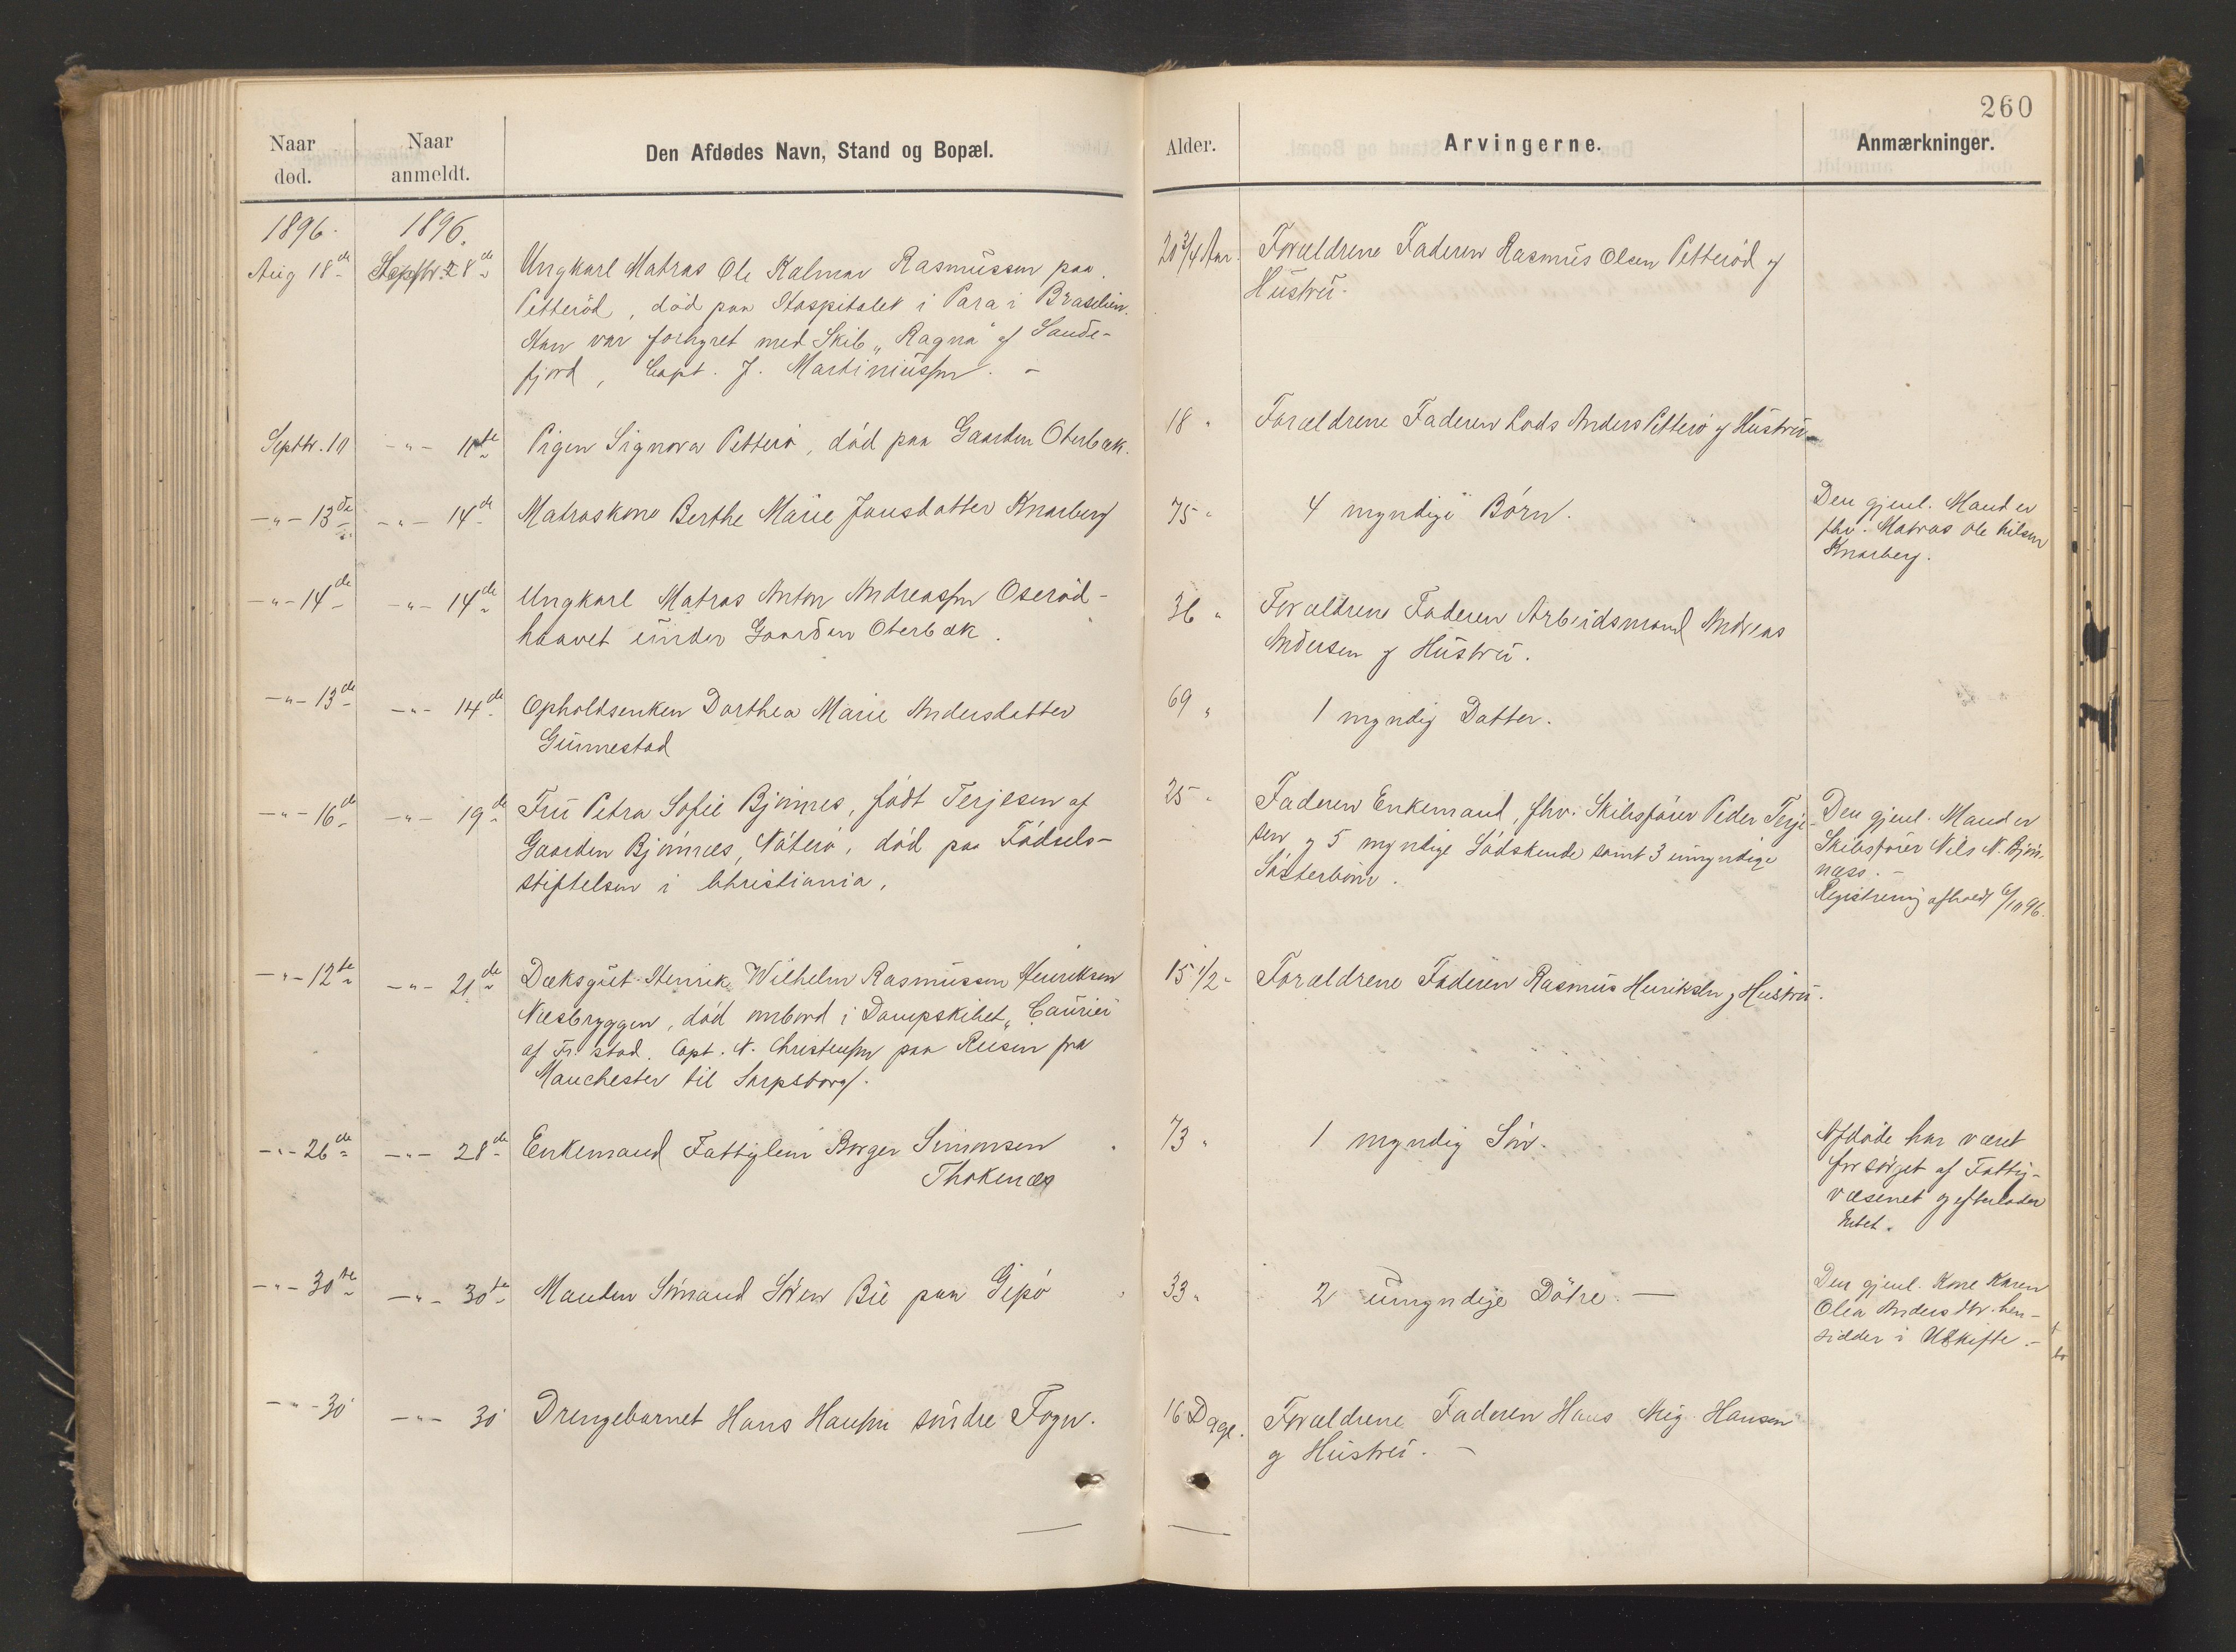 260
Naar død.
Naar anmeldt.
Den Afdødes Navn, Stand og Bopæl.
Alder.
Arvingerne.
Anmærkninger.
1896.
1896.
Aug 18de
Septbr. 8de
Ungkarl Matros Ole Kalmar Rasmussen paa
Petteröd, död paa Hospitalet i Para i Brasilien.
Han var forhyret med Skib „Ragna" af Sande-
fjord, Capt. J. Martiniussen. -
20 3/4 Aar.
Forældrene Faderen Rasmus Olsen Petteröd og
Hustru.
Septbr. 10
-"- 11te
Pigen Signora Petterö, död paa Gaarden Oterbæk.
18 "
Forældrene Faderen Lods Anders Petterö og Hustru
-"- 13de
-"- 14de
Matroskone Berthe Marie Jonsdatter Knarberg
75 "
4 myndige Börn.
Den gjenl. Mand er
fhv. Matros Ole Nilsen
Knarberg.
-"- 14de
-"- 14de
Ungkarl Matros Anton Andreassen Oseröd-
haavet under Gaarden Oterbæk.
36 "
Forældrene Faderen Arbeidsmand Andreas
Andersen og Hustru.
-"- 13de
-"- 14de
Opholdsenken Dorthea Marie Andersdatter
Gunnestad
69 "
1 myndig Datter.
-"- 16de
-"- 19de
Fru Petra Sofie Bjönnes, födt Terjesen af
Gaarden Bjönnæs, Nöterö, död paa Födsels-
stiftelsen i Christiania.
25 "
Faderen Enkemand, fhv. Skibsförer Peder Terje-
sen og 5 myndige Södskende samt 3 umyndige
Sösterbörn.
Den gjenl. Mand er
Skibsförer Nils N. Bjön-
næss. -
Registrering afholdt 6/10 96.
-"- 12te
-"- 21de
Dæksgut Henrik Wilhelm Rasmussen Henriksen
Næsbryggen, död ombord i Dampskibet „Courier"
af Fr.stad. Capt. N. Christensen paa Reisen fra
Manchester til Sarpsborg.
15 1/2 "
Forældrene Faderen Rasmus Henriksen og Hustru.
-"- 26de
-"- 28de
Enkemand Fattiglem Borger Simonsen
Thokenæs
73 "
1 myndig Sön.
Afdöde har været
forsörget af Fattig-
væsenet og efterlader
Intet.
-"- 30te
-"- 30te
Manden Sömand Sören Bie paa Gipö
33 "
2 umyndige Dötre. -
Den gjenl. Kone Karen
Olea Andersdtr. hen-
sidder i Uskifte. -
-"- 30
-"- 30
Drengebarnet Hans Hansen söndre Fogn.
16 Dage.
Forældrene Faderen Hans Mig. Hansen
og Hustru. -